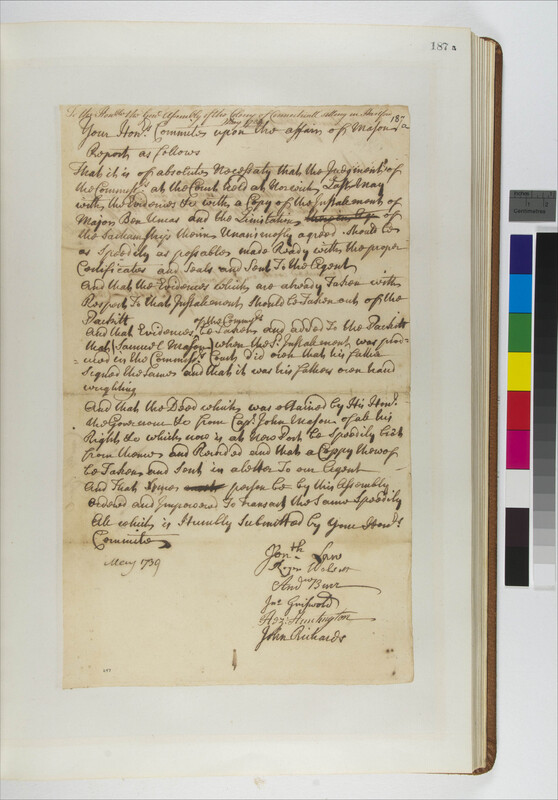 187 a
To the Honble the Genll Assembly of the Colony of Connecticutt sitting in Hartford
187
a
Your Honrs Commitee upon the affairs of Mason
Report as follows
That it is of absolute Necessaty that the Judgment of
the Commissrs at the Court held at Norwich Last May
with the Evidences &c with a Copy of the Instalement of
Major Ben Uncas and the Limitation of
the Sachamship therein Unanimously agreed should be
as Speedily as possable made Ready with the proper
Certificates and Seals and Sent To the Agent
And that the Evidences which are already Taken with
Respect To that Instalement should be Taken out of the
Packett
of the Commissrs
And that Evidences be Taken and added To the Packett
that Samuel Mason when the sd Instalement was pro=
=duced in the Commissrs Court, Did own that his father
Signed the Same and that it was his fathers own hand
wrighting
And that the Deed which was obtained by His Honr
the Governour &c from Capt John Mason of all his
Right &c which now is at New Port be Speedily
from thence and Recorded and that a Coppy thereof
be Taken and Sent in a letter To our Agent
And that some person be by this Assembly
ordered and Impowered To transact the Same Speedily
All which is Humbly Submitted by your Honrs
Commitee
May 1739
Jonth Law
Rogr Wolcott
Andw Burr
Jno Griswold
Hez: Huntington
John Richards